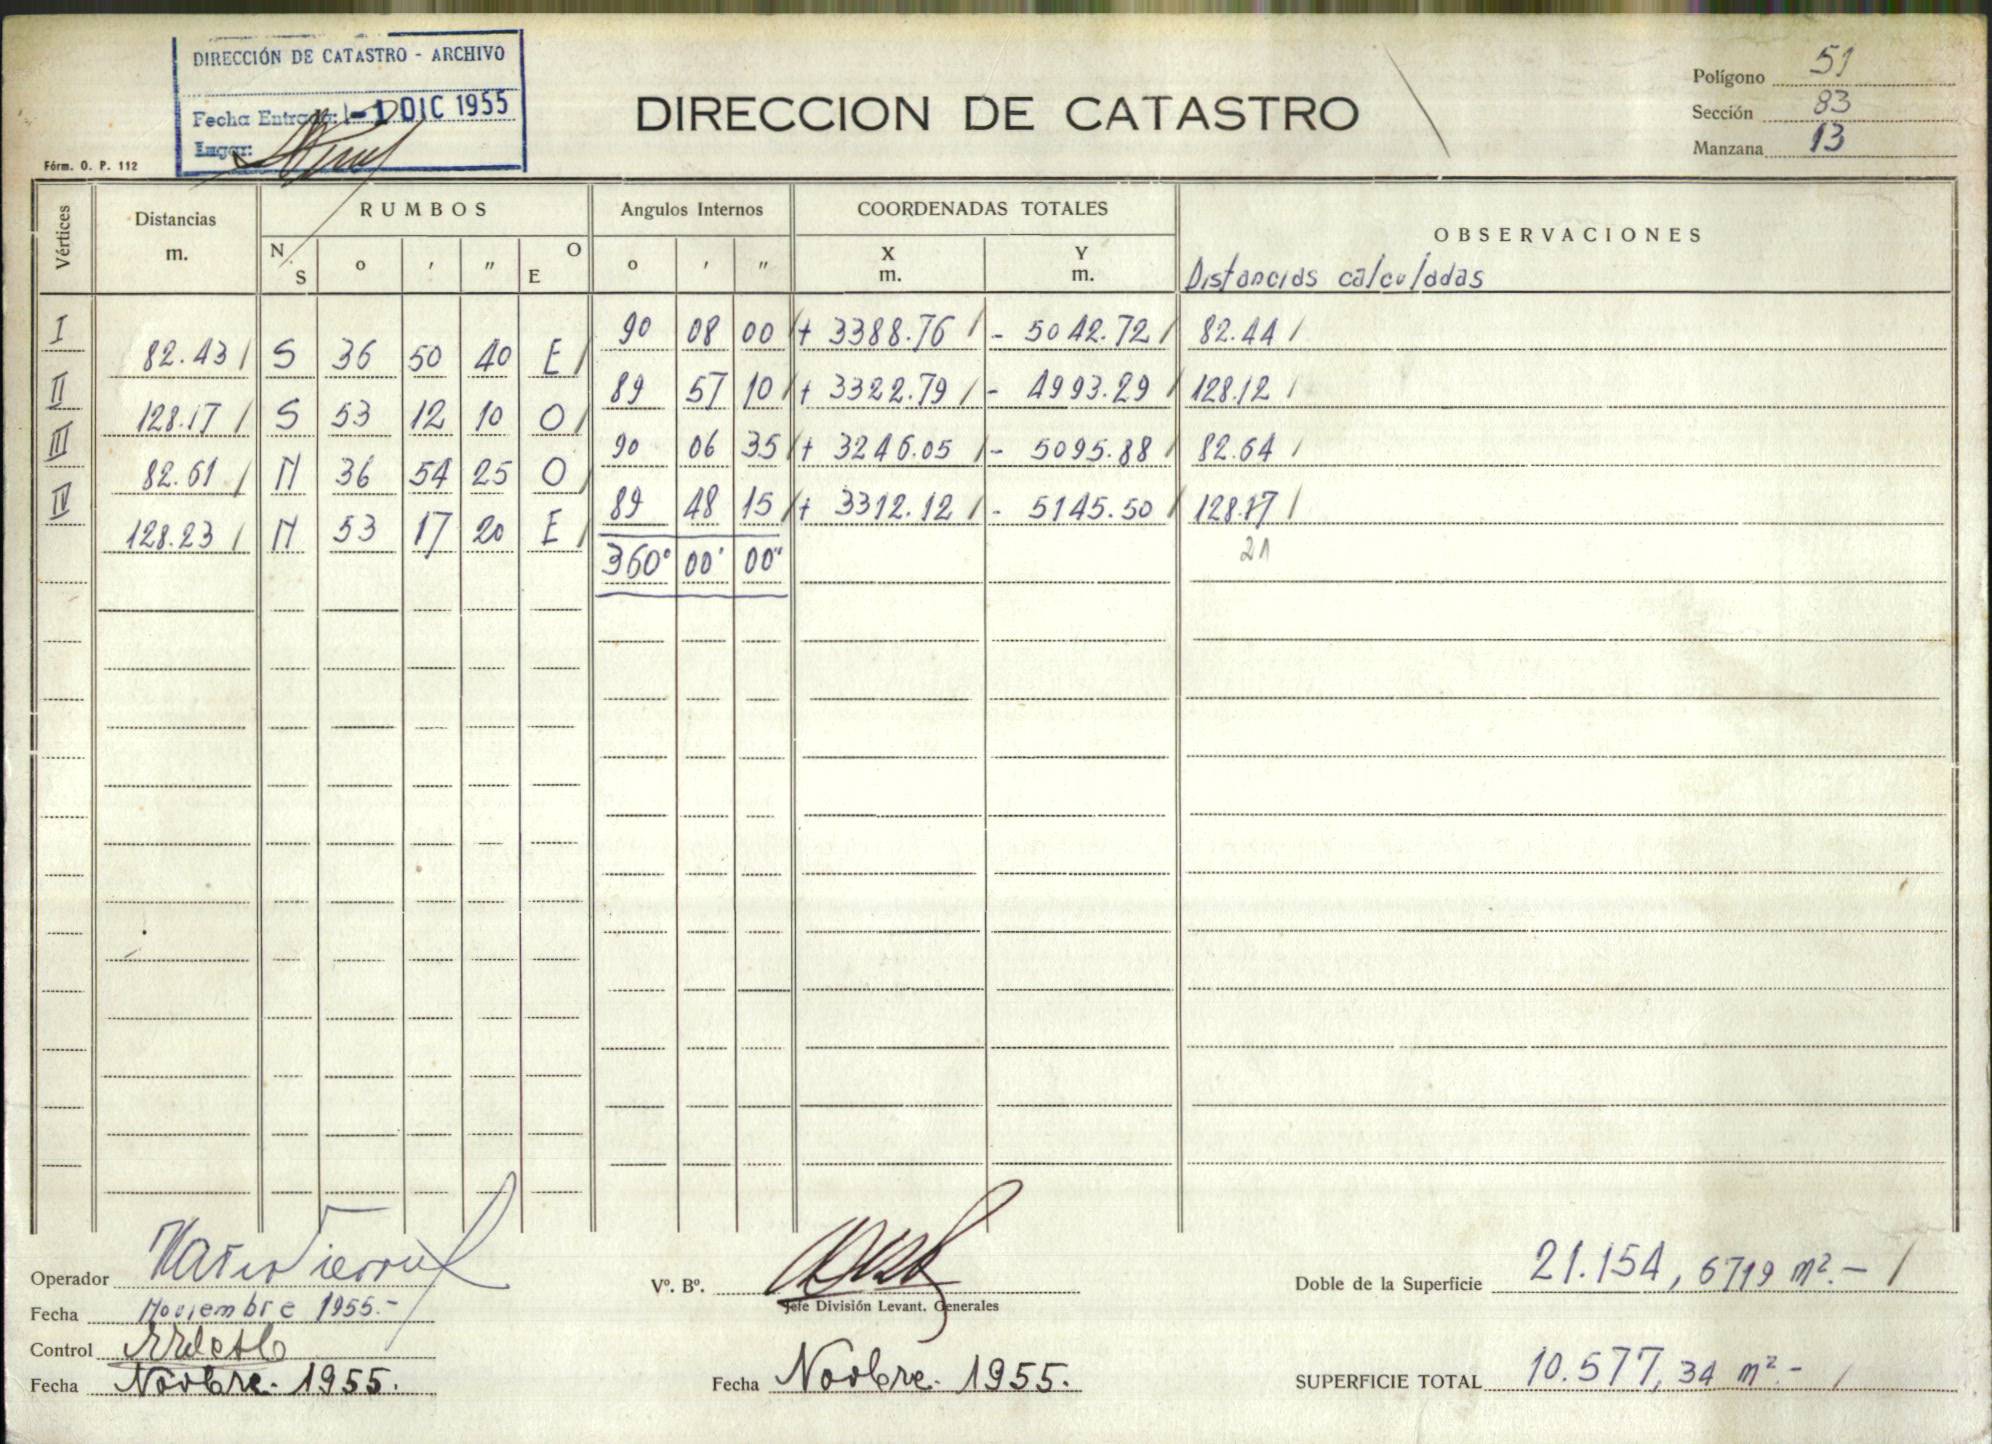 DIRECCIÓN DE CATASTRO - ARCHIVO
Fecha Entrada: - 1 DIC 1955
Lugar:
Fórm. O. P. 112
DIRECCION DE CATASTRO
Polígono 51
Sección 83
Manzana 13
Vértices Distancias m. RUMBOS N S o ′ ″ E O Angulos Internos o ′ ″ COORDENADAS TOTALES X m. Y m. OBSERVACIONES
Distancias calculadas
I 90 08 00 / + 3388.76 / - 5042.72 / 82.44 /
82.43 / S 36 50 40 E /
II 89 57 10 / + 3322.79 / - 4993.29 / 128.12 /
128.17 / S 53 12 10 O /
III 90 06 35 / + 3246.05 / - 5095.88 / 82.64 /
82.61 / N 36 54 25 O /
IV 89 48 15 / + 3312.12 / - 5145.50 / 128.17 /
128.23 / N 53 17 20 E /
21
360° 00' 00"
Operador
Fecha Noviembre 1955.-
Control
Fecha Novbre. 1955.
Vº. Bº.
Jefe División Levant. Generales
Fecha Novbre. 1955.
Doble de la Superficie 21.154,6719 m². - /
SUPERFICIE TOTAL 10.577,34 m² - /